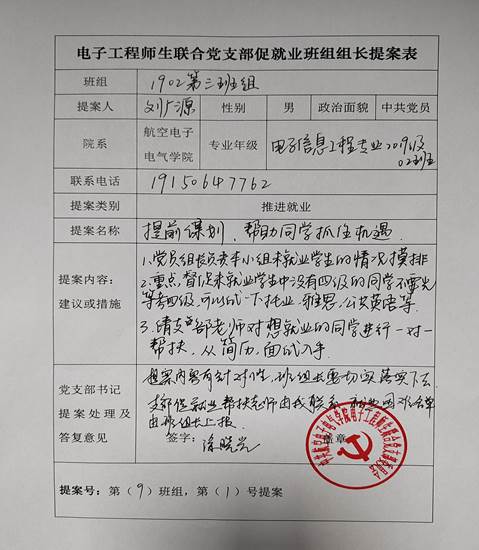 电子工程师生联合党支部促就业班组组长提案表
班组 1902第三班组
提案人 刘广源 性别 男 政治面貌 中共党员
院系 航空电子电气学院 专业年级 电子信息工程专业2019级02班
联系电话 19150647762
提案类别 推进就业
提案名称 提前谋划,帮助同学抓住机遇.
提案内容:
建议或措施
1.党员组长负责本小组未就业学生的情况摸排
2.重点,督促未就业学生中没有四级的同学不要光
等考四级,可以试一下托业、雅思、公共英语等.
3.请支部老师对想就业的同学进行一对一
帮扶,从简历,面试入手.
党支部书记
提案处理及
答复意见
提案内容有针对性,班组长要切实落实下去
支部促就业帮扶老师由我联系,
由班组长上报.
签字: 盖章
提案号:第(9)班组,第(1)号提案